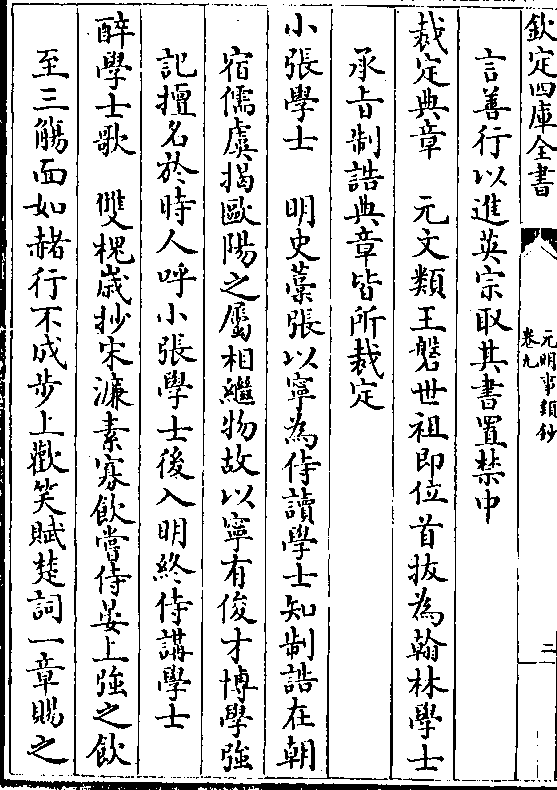 欽定四庫全書
元明事類鈔
卷九
二
言善行以進英宗取其書置禁中
裁定典章　元文類王磐世祖即位首拔為翰林學士
承旨制誥典章皆所裁定
小張學士　明史藁張以寧為侍讀學士知制誥在朝
宿儒虞揭歐陽之屬相繼物故以寧有俊才博學強
記擅名於時人呼小張學士後入明終侍講學士
醉學士歌　雙槐嵗抄宋濂素寡飲嘗侍宴上強之飲
至三觴面如赭行不成步上歡笑賦楚詞一章賜之